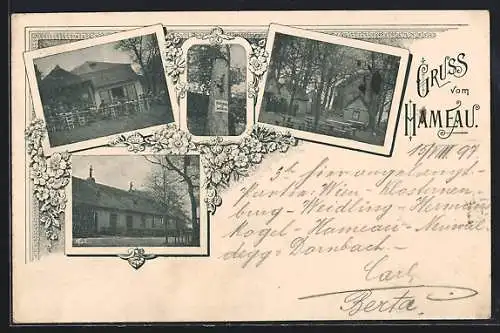 GRUSS
vom
HAMEAU.
15/VIII 97
hier angelangt -
Wien - Klosterneu
burg - Weidling - Hermans
Kogel - Hameau - Neuwal
degg - Dornbach -
Carl
Berta